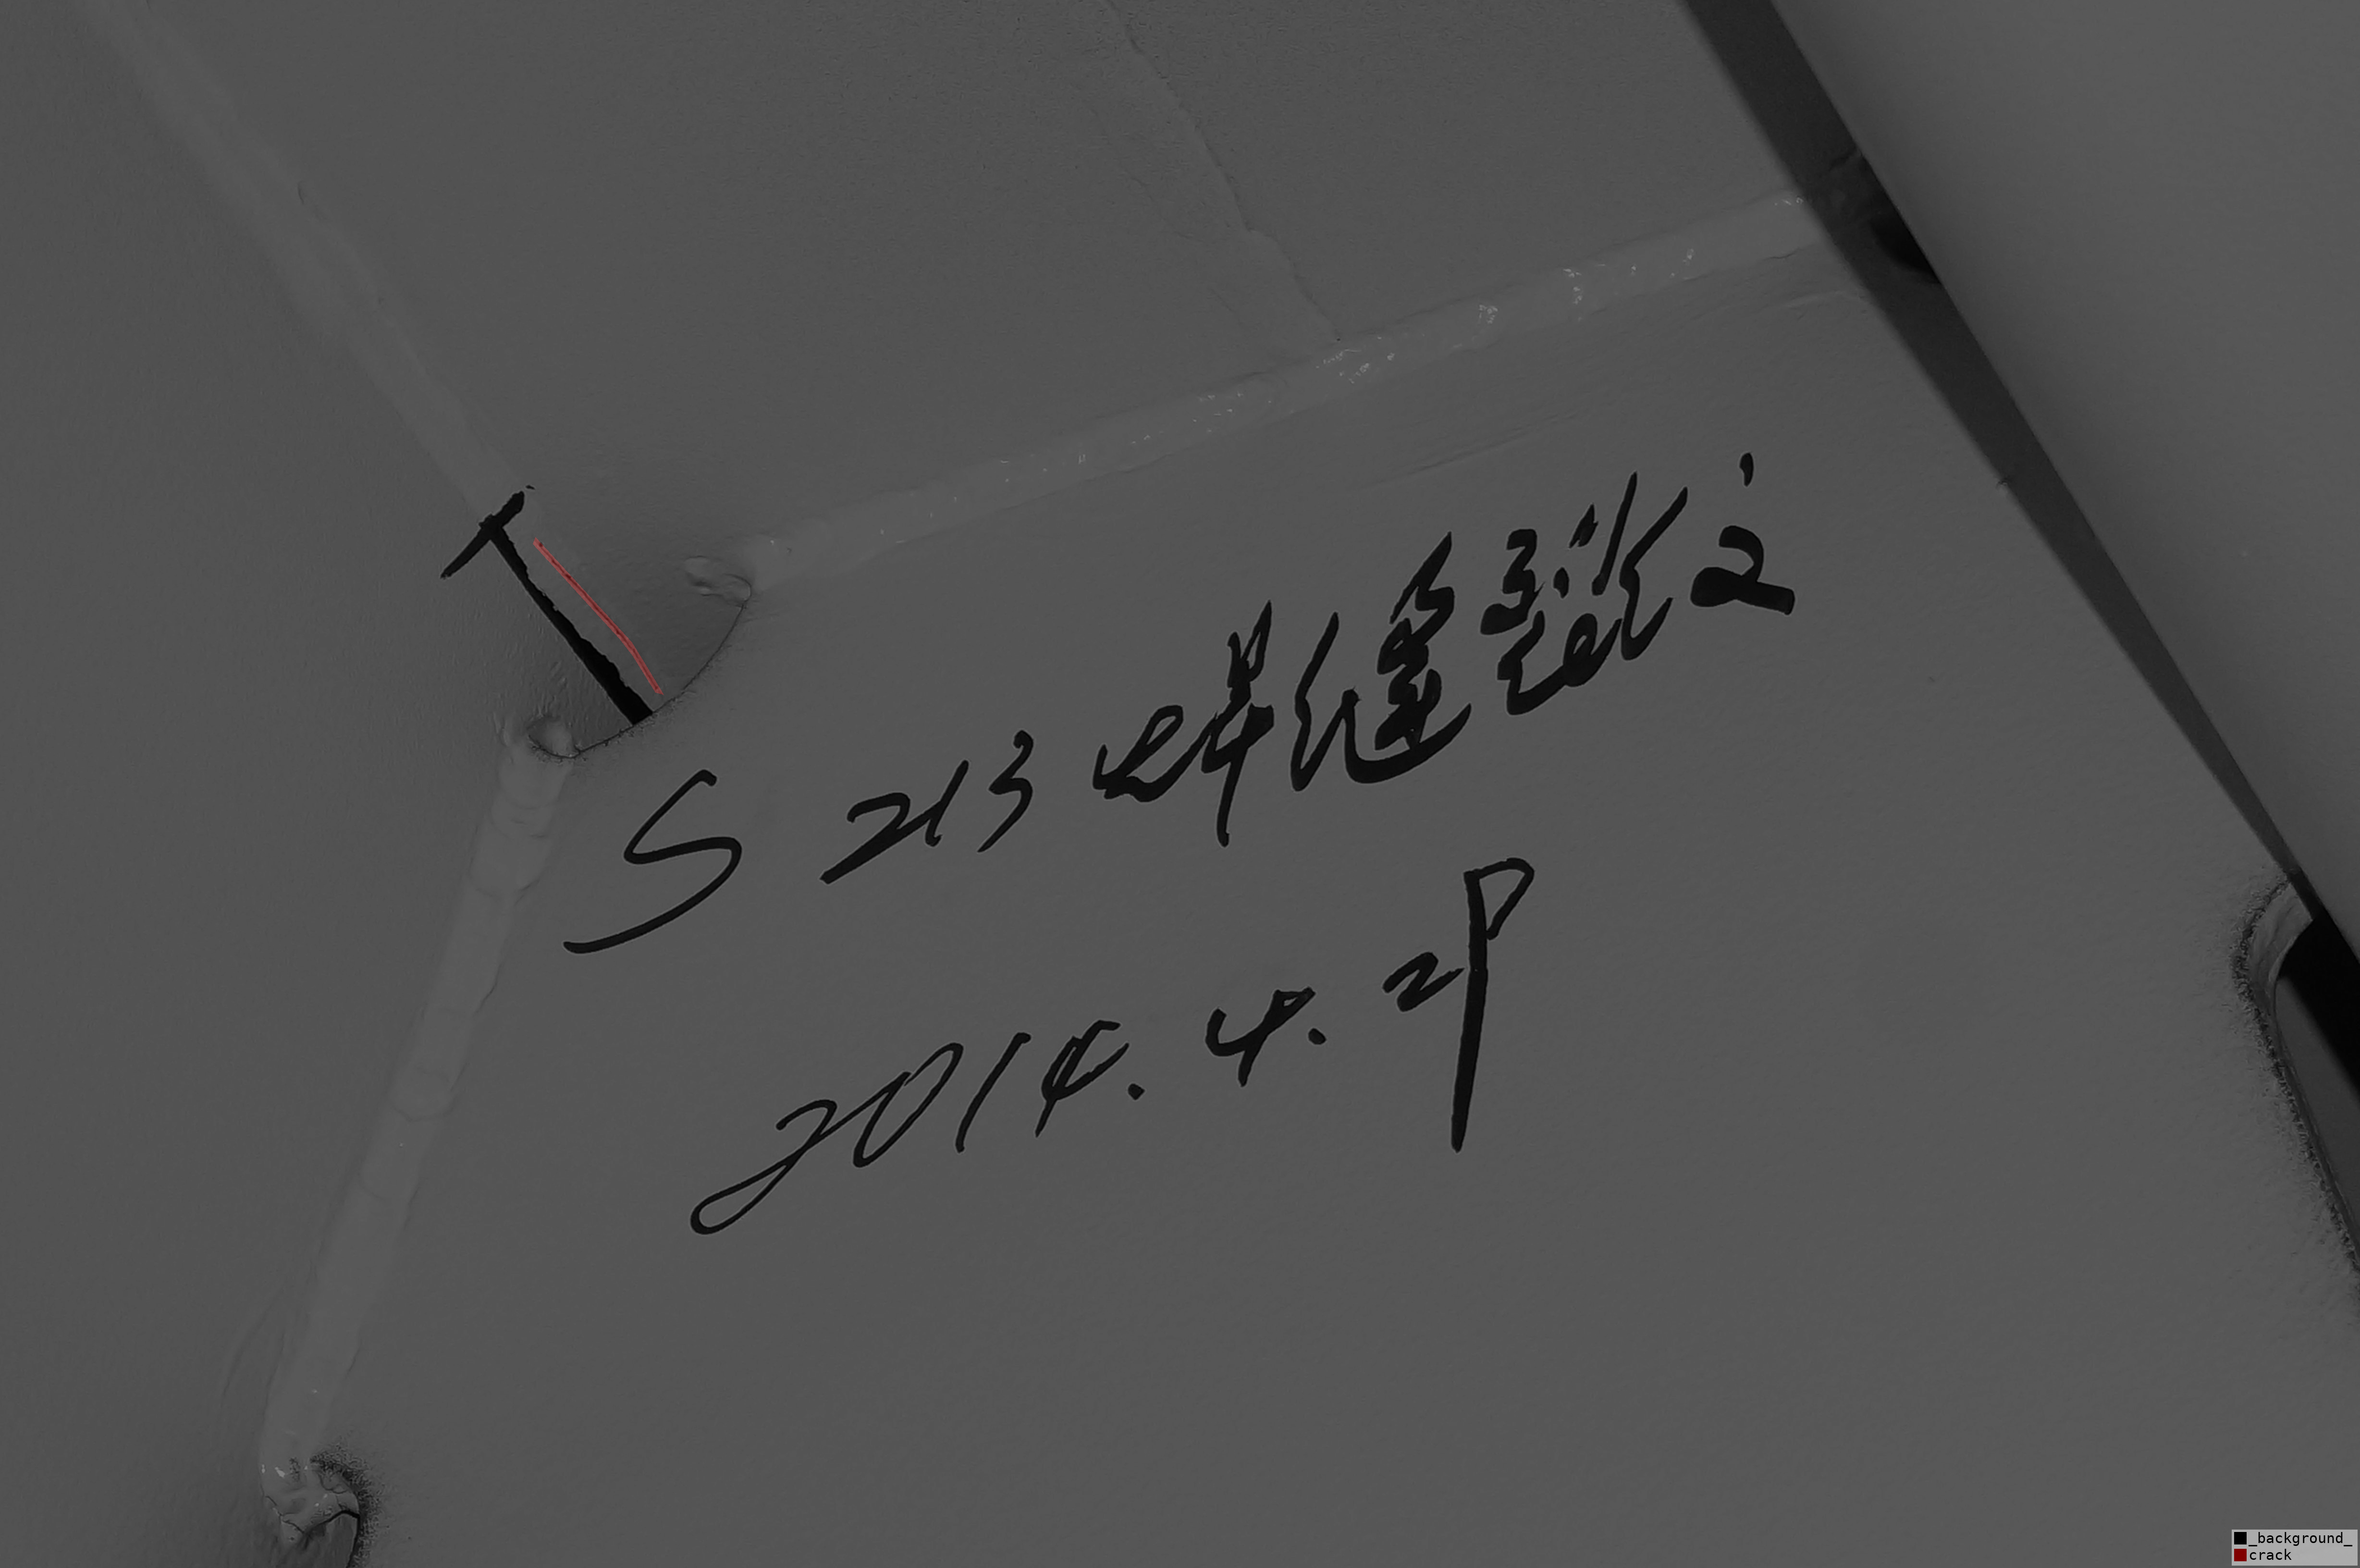 S 213 焊缝裂纹
2014.4.29
_background_
crack